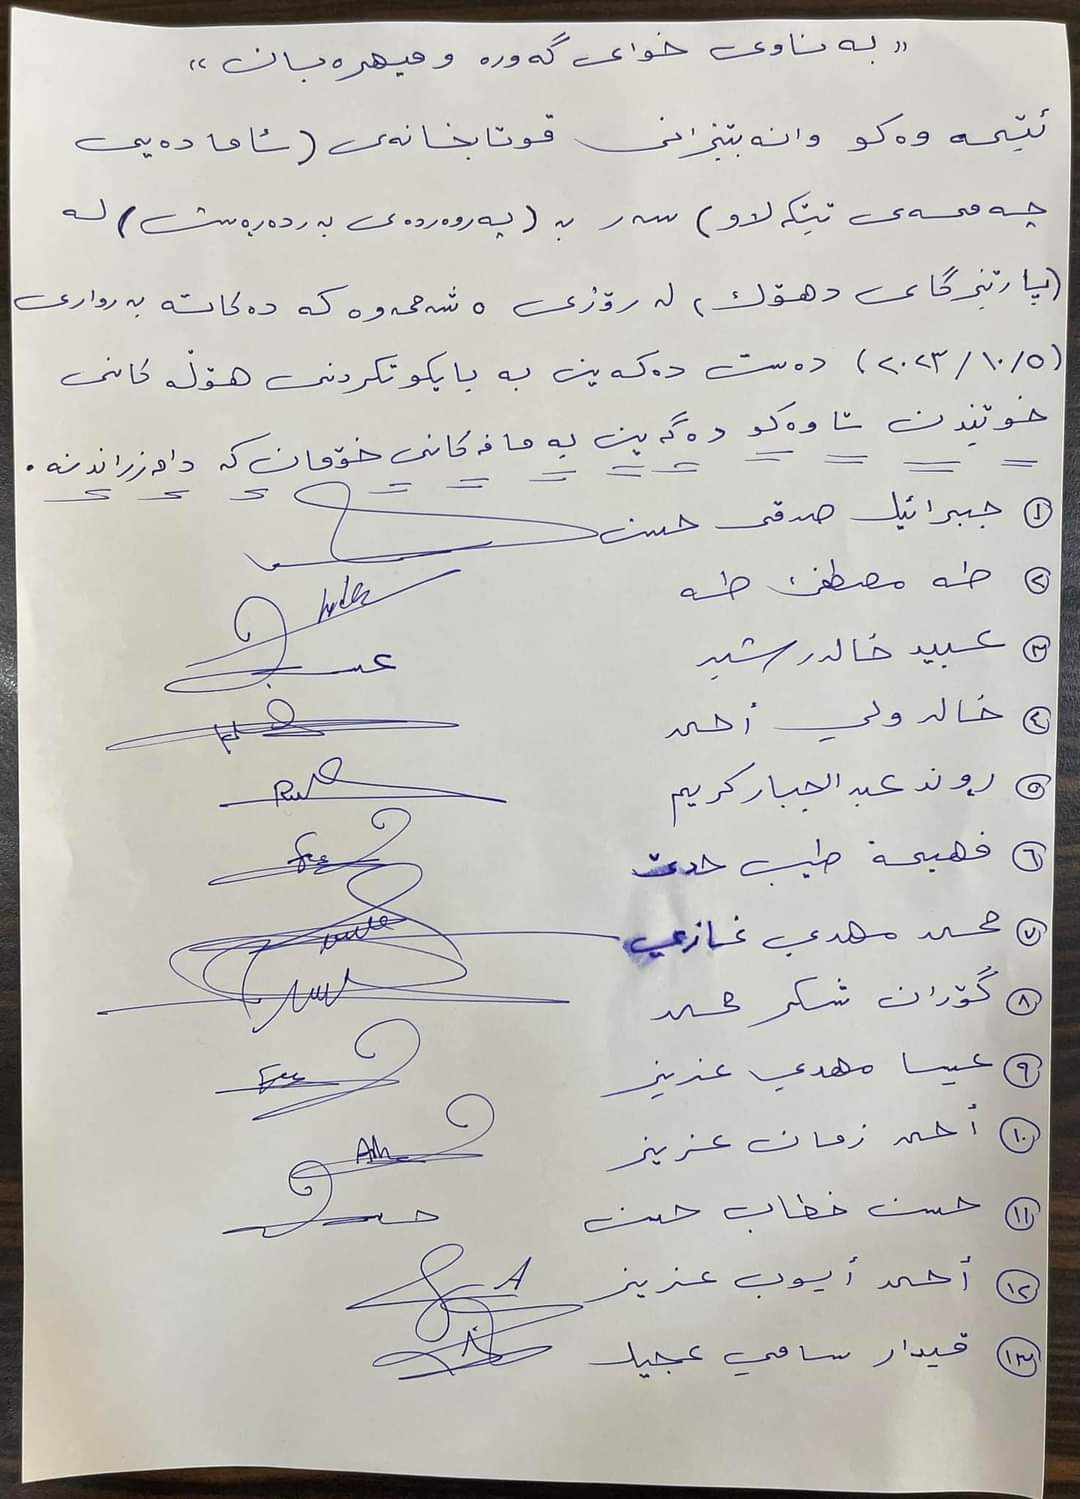 «بە ناوی خوای گەورە و میهرەبان»
ئێمە وەکو وانەبێژانی قوتابخانەی (ئامادەیی
چەمەی تێکەلاو) سەر بە (پەروەردەی بەردەڕەش) لە
(پارێزگای دهۆك) لە رۆژی ٥ شەمموە کە دەکاتە بەرواری
(٢٠٢٣/١٠/٥) دەست دەکەین بە بایکوتکردنی هۆڵەکانی
خوێندن تاوەکو دەگەین بە مافەکانی خۆمان کە دامەزراندنە.
١ جبرائيل صدقي حسن
٢ طه مصطفى طه
٣ عبيد خالد رشيد عبـ
٤ خالد ولي أحمد
٥ روند عبد الجبار كريم
٦ فهيمة طيب
٧ محمد مهدي غازي
٨ گۆران شكر محمد
٩ عيسا مهدي عزيز
١٠ أحمد زمان عزيز
١١ حسن خطاب حسن
١٢ أحمد أيوب عزيز A
١٣ قيدار سامي عجيل